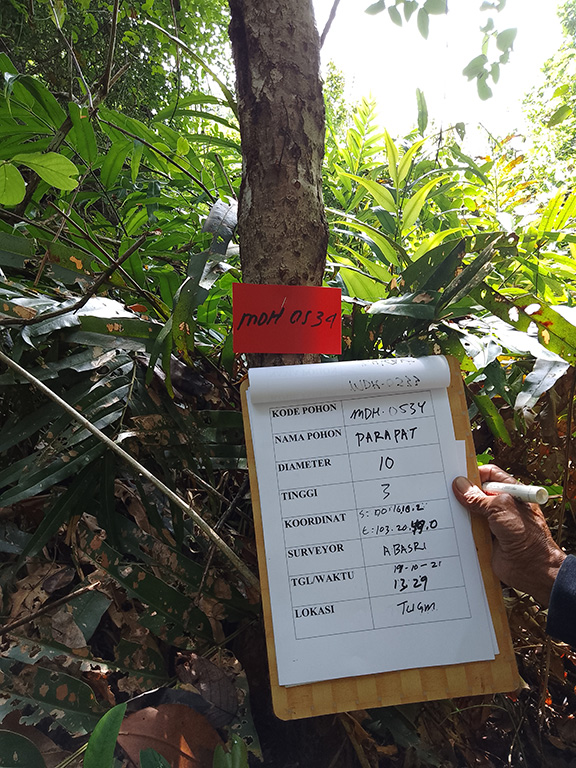 MDH 0534
MDH-0233
KODE POHON MDH-0534
NAMA POHON PARAPAT
DIAMETER 10
TINGGI 3
KOORDINAT S: 00.16.18.2"
E: 103.20.49.0
SURVEYOR ABASRI
TGL/WAKTU 19-10-21
13:29
LOKASI TUGM